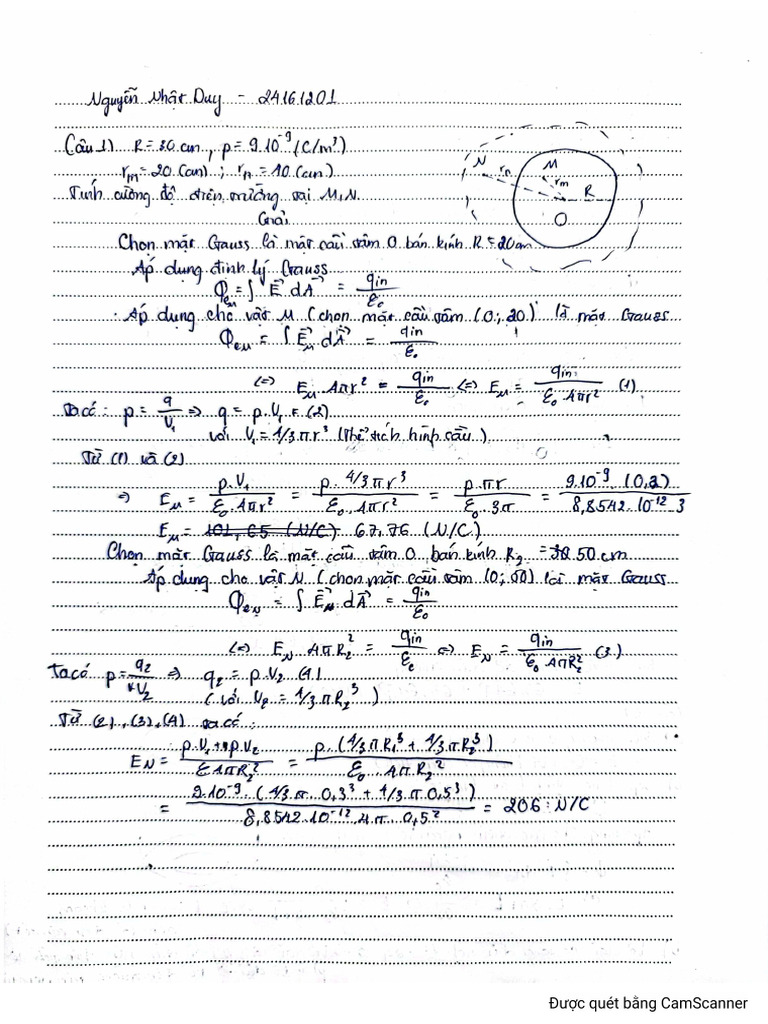 Nguyễn Nhật Duy - 24161201
Câu 1) R = 30 cm, ρ = 9.10⁻⁹ (C/m³)
r_M = 20 (cm) ; r_n = 10 (cm)
Tính cường độ điện trường tại M, N.
Giải
N
r_n
M
r_m
R
O
Chọn mặt Gauss là mặt cầu tâm O bán kính R = 20cm
Áp dụng định lý Gauss
Φ_e = ∫ E⃗ dA⃗ = q_in/ε₀
Áp dụng cho vật M (chọn mặt cầu tâm (O; 20) là mặt Gauss
Φ_eM = ∫ E⃗_M dA⃗ = q_in/ε₀
(=) E_M 4πr² = q_in/ε₀ (=) E_M = q_in/(ε₀ 4πr²) (1)
Ta có : ρ = q/V₁ => q = ρ.V₁ (2)
với V₁ = 4/3πr³ (thể tích hình cầu)
Từ (1) và (2)
=> E_M = ρ.V₁/(ε₀.4πr²) = ρ.4/3πr³/(ε₀.4πr²) = ρ.πr/(ε₀.3π) = 9.10⁻⁹.(0,2)/(8,8542.10⁻¹².3)
E_M = 101,65 (N/C) 67,76 (N/C)
Chọn mặt Gauss là mặt cầu tâm O, bán kính R₂ = 50 cm
Áp dụng cho vật N (chọn mặt cầu tâm (O; 50) là mặt Gauss
Φ_eN = ∫ E⃗_N dA⃗ = q_in/ε₀
(=) E_N 4πR₂² = q_in/ε₀ (=) E_N = q_in/(ε₀ 4πR₂²) (3)
Ta có ρ = q₂/V₂ => q₂ = ρ.V₂ (4)
(với V₂ = 4/3πR₂³)
Từ (2), (3), (4) ta có :
E_N = (ρ.V₁ + ρ.V₂)/(ε 4πR₂²) = ρ.(4/3πR₁³ + 4/3.πR₂³)/(ε₀.4πR₂²)
= 9.10⁻⁹.(4/3.π.0,3³ + 4/3.π.0,5³)/(8,8542.10⁻¹².4π.0,5²) = 206 N/C
Được quét bằng CamScanner